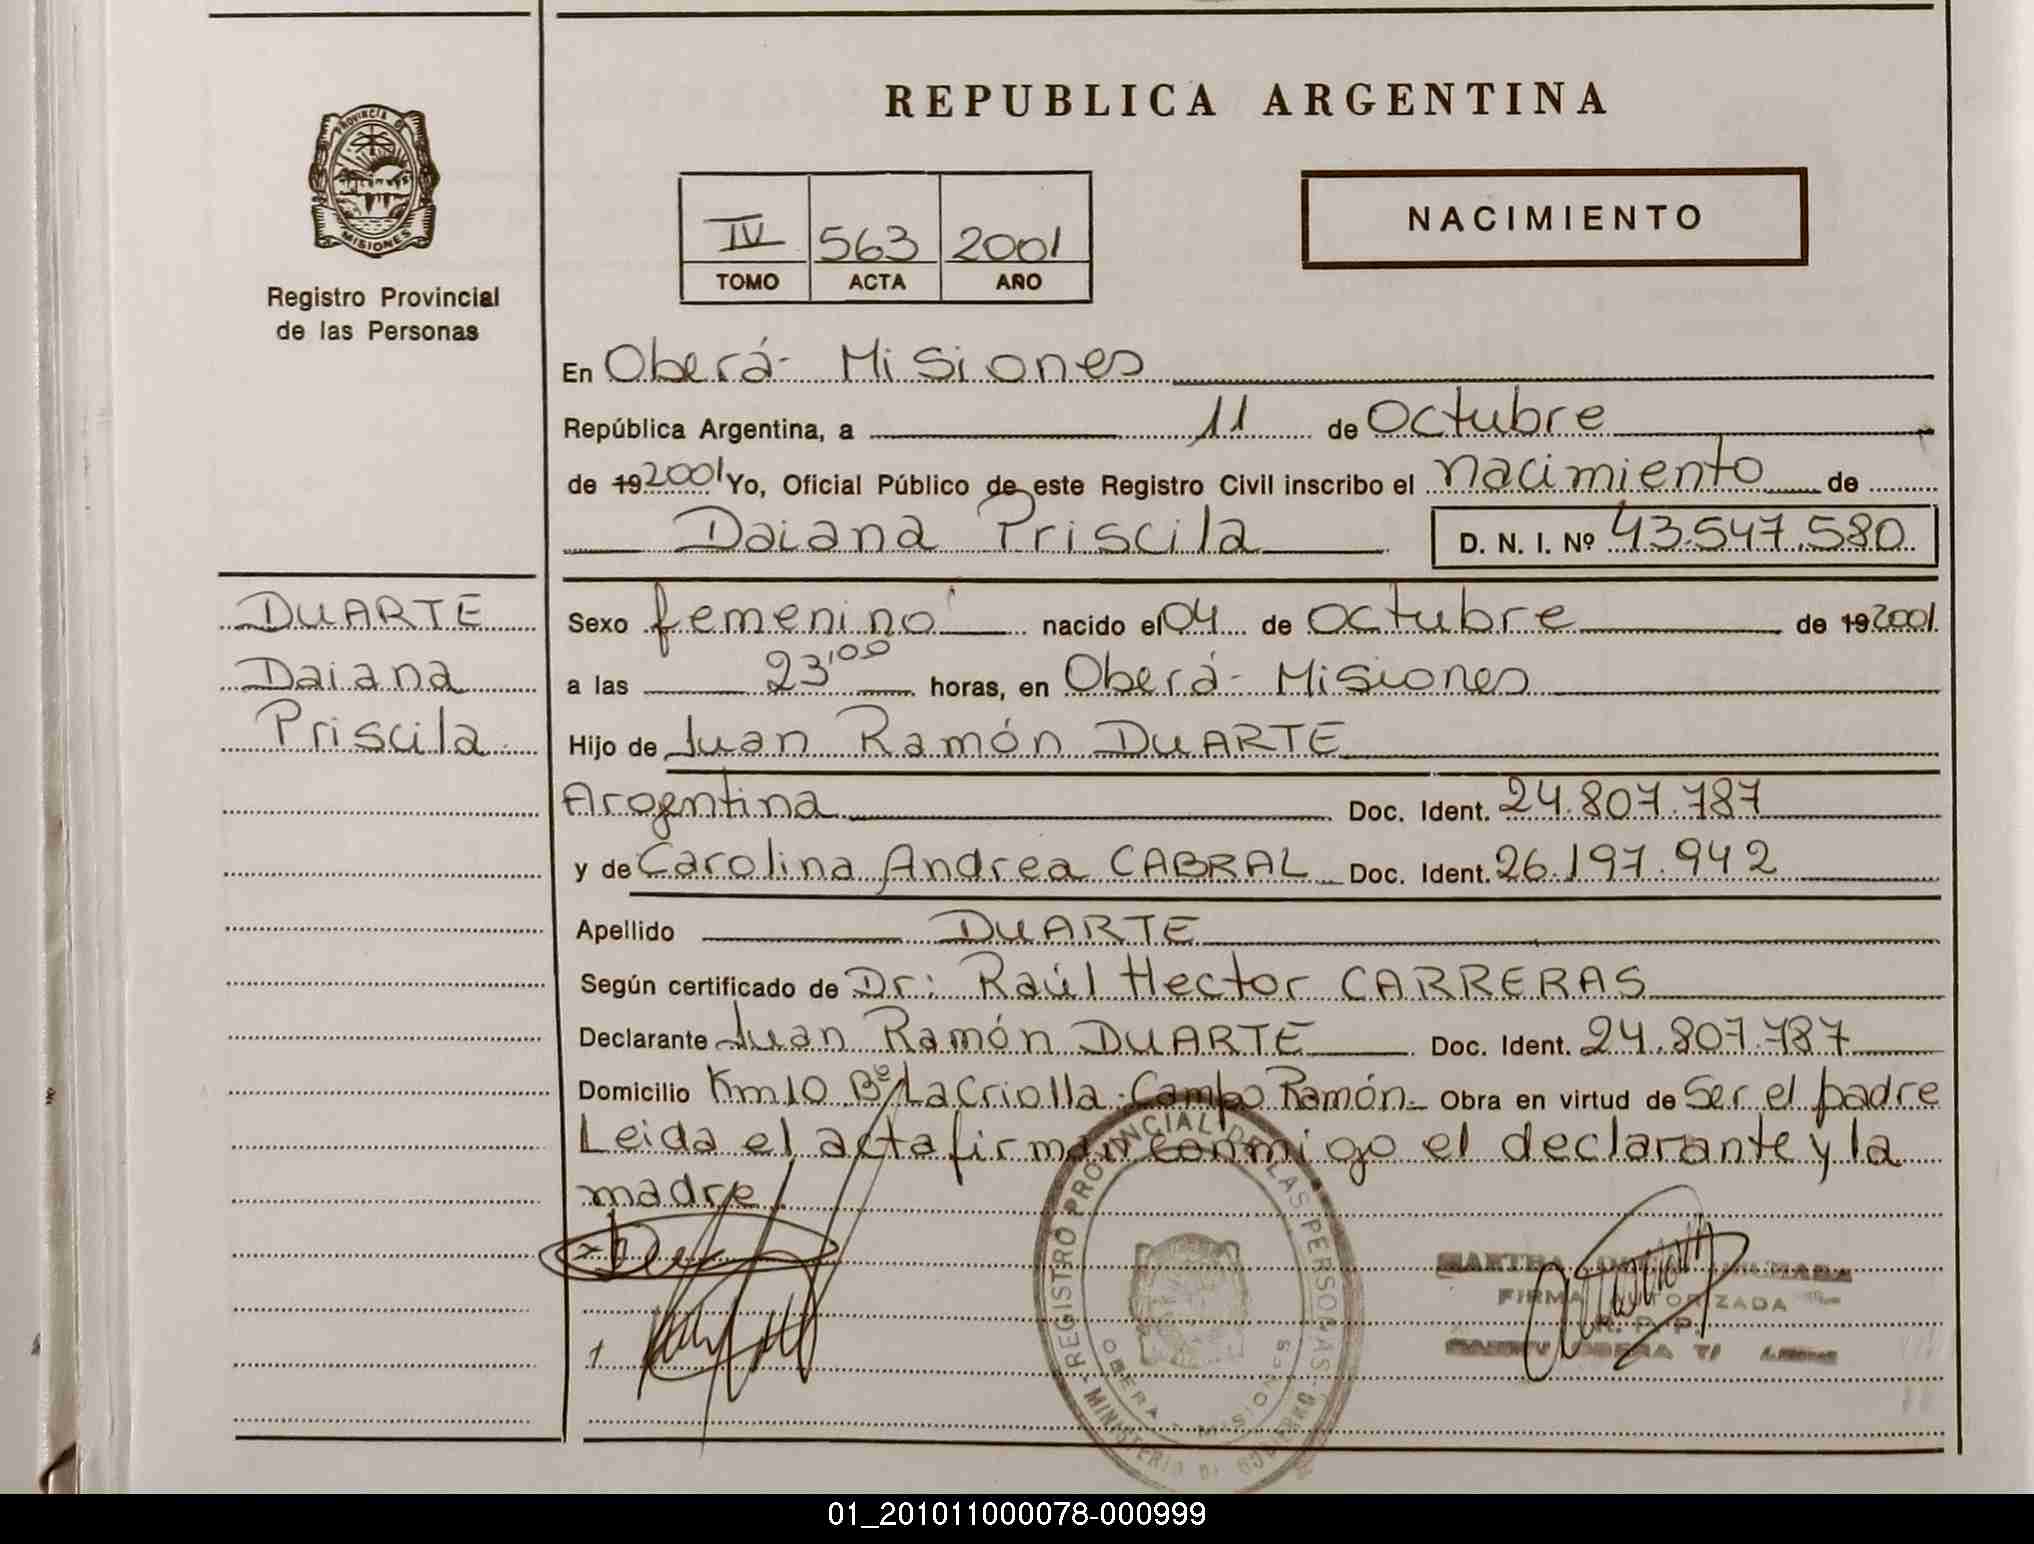 REPUBLICA ARGENTINA
PROVINCIA D
MISIONES
Registro Provincial
de las Personas
IV 563 2001
TOMO ACTA AÑO
NACIMIENTO
En Oberá- Misiones
República Argentina, a 11 de Octubre
de 19 2001 Yo, Oficial Público de este Registro Civil inscribo el nacimiento de
Daiana Priscila D. N. I. Nº 43.547.580
DUARTE
Daiana
Priscila
Sexo femenino nacido el 04 de Octubre de 19 2001
a las 23,00 horas, en Oberá- Misiones
Hijo de Juan Ramón DUARTE
Argentina Doc. Ident. 24.807.787
y de Carolina Andrea CABRAL Doc. Ident. 26.197.942
Apellido DUARTE
Según certificado de Dr: Raúl Hector CARRERAS
Declarante Juan Ramón DUARTE Doc. Ident. 24.807.787
Domicilio Km10 Bº La Criolla- Campo Ramón- Obra en virtud de Ser el padre
Leida el acta firman conmigo el declarante y la
madre
REGISTRO PROVINCIAL DE LAS PERSONAS
OBERA - MISIONES
MINISTERIO DE GOBIERNO
FIRMA AUTORIZADA
R. P. P.
01_201011000078-000999